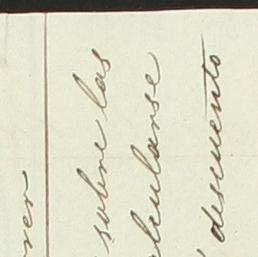 sobre las
lcularse
descuento